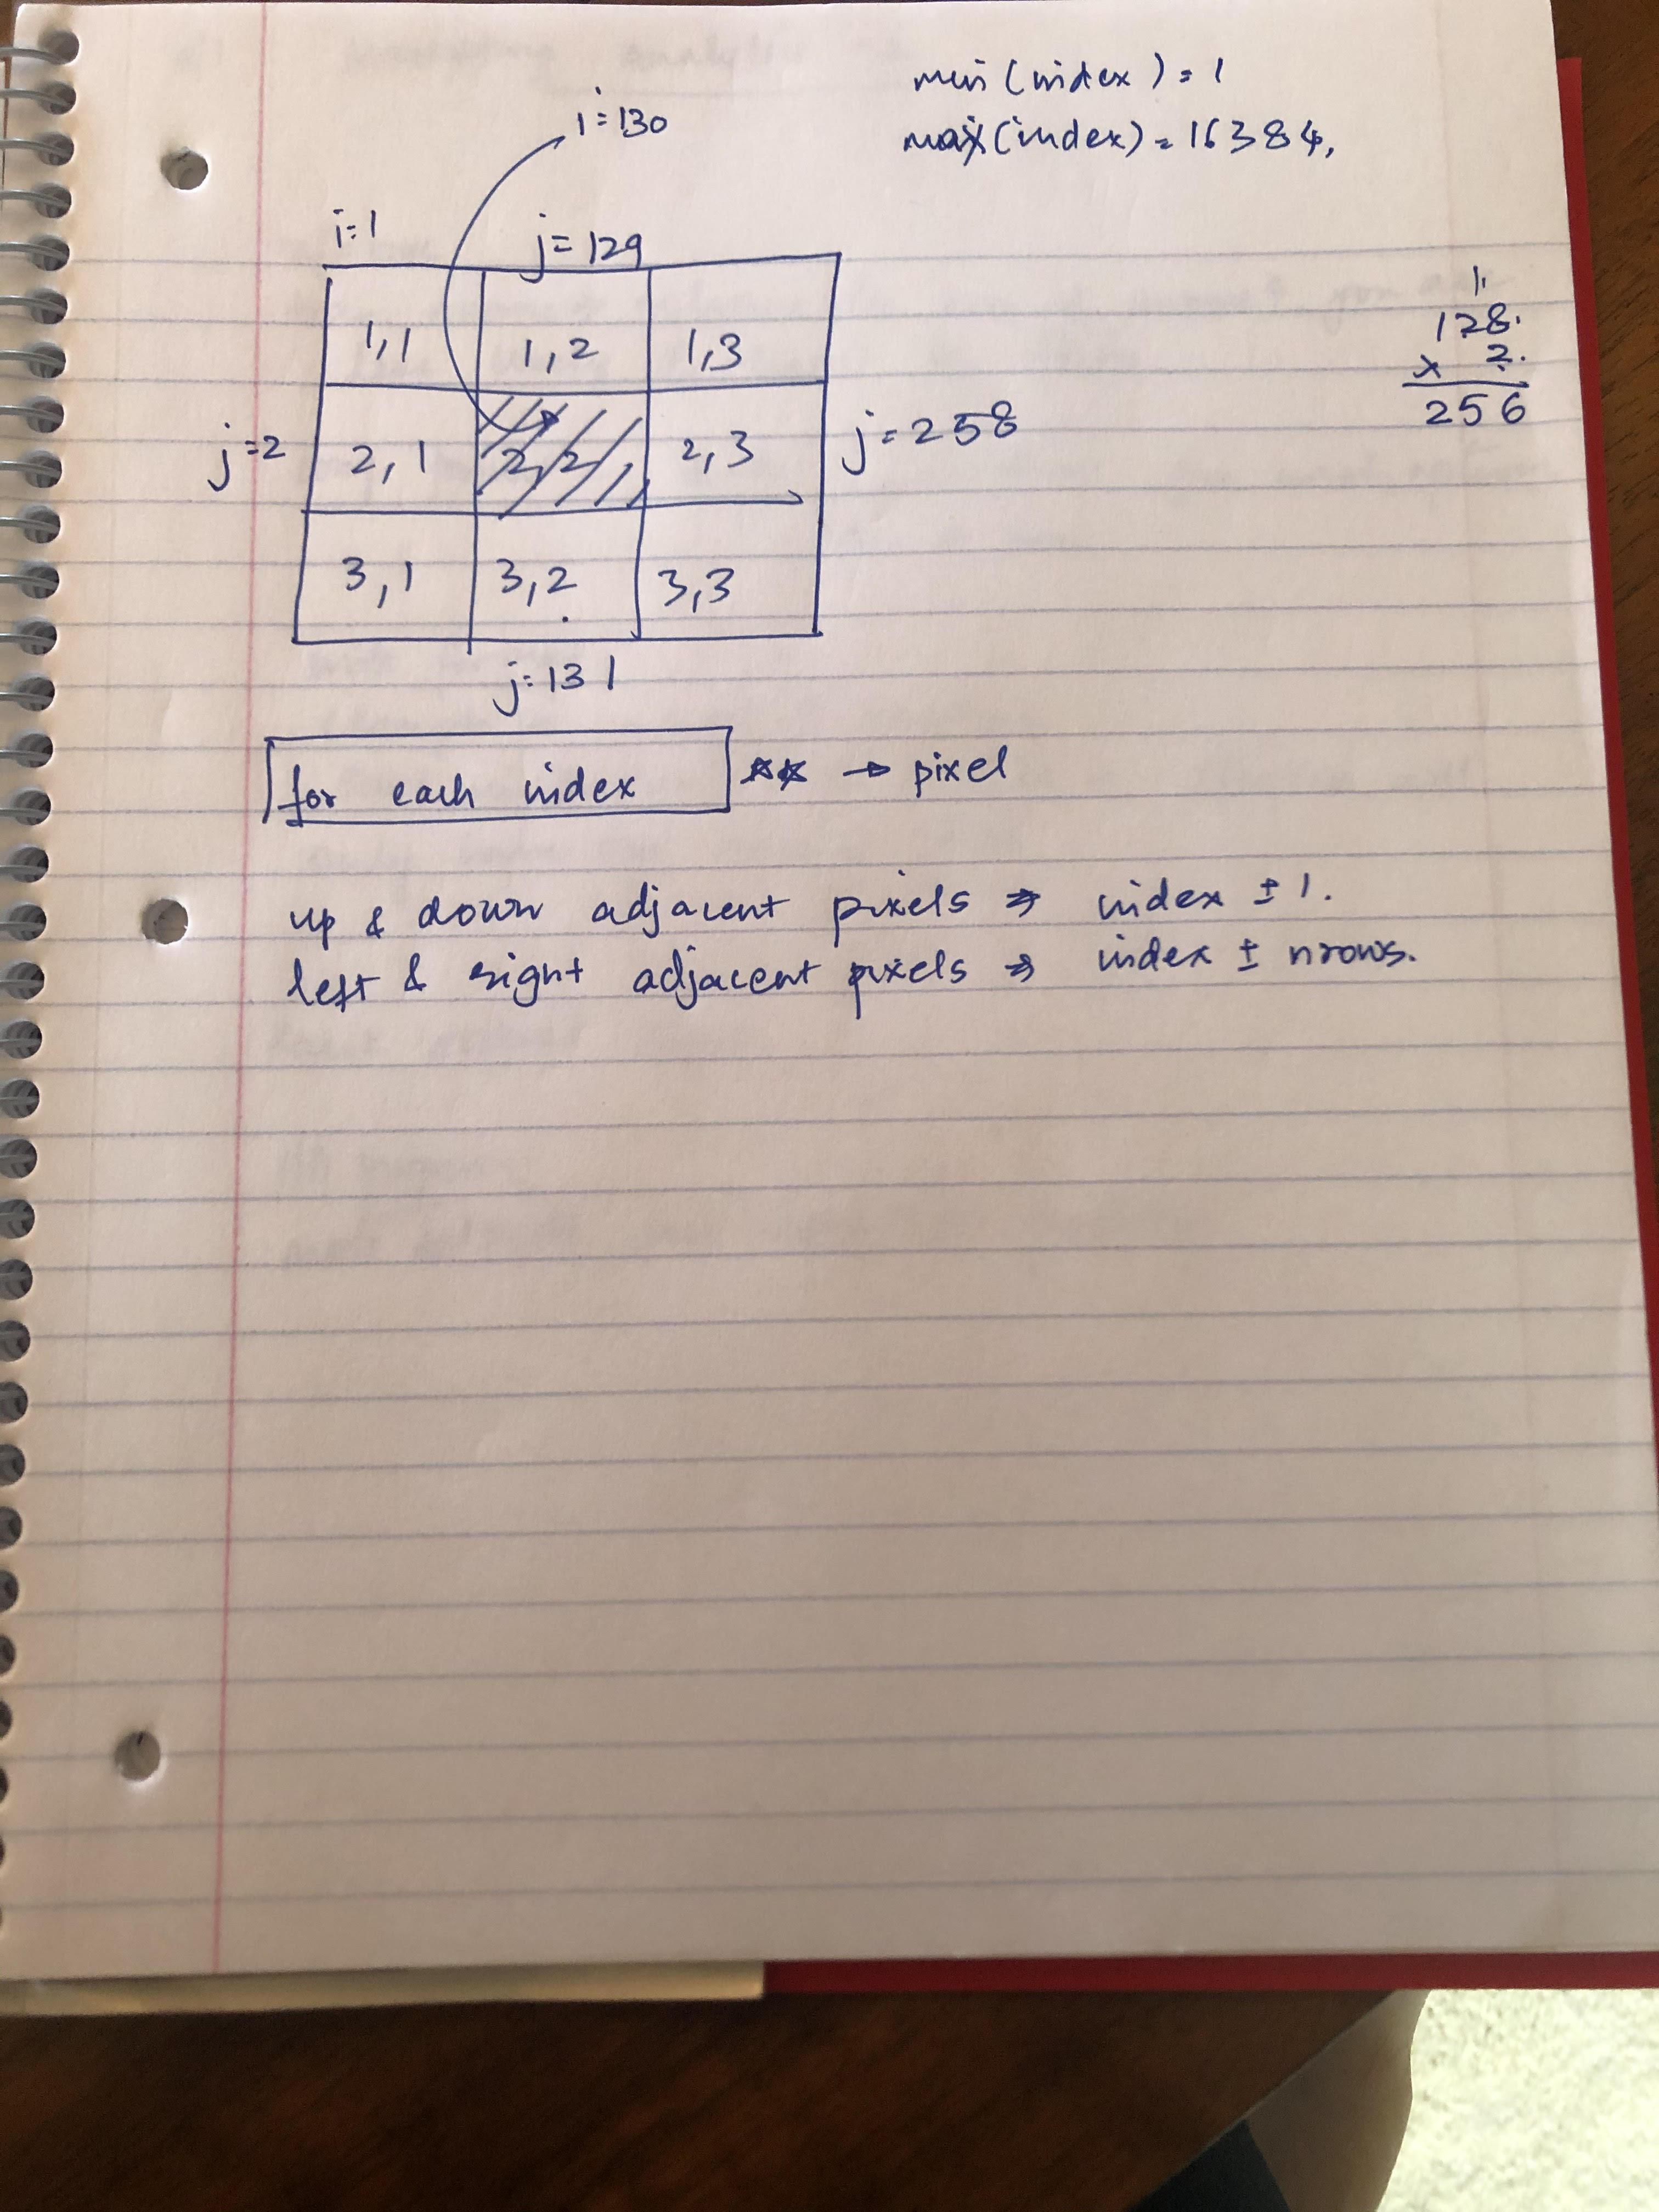 min (index) = 1
max (index) = 16384,
i=130
i=1
j=129
1,1 1,2 1,3
1
128.
x 2.
256
j=2 2,1 2,2 2,3 j=258
3,1 3,2 3,3
j=131
for each index ** → pixel
up & down adjacent pixels ⇒ index ± 1.
left & right adjacent pixels ⇒ index ± nrows.